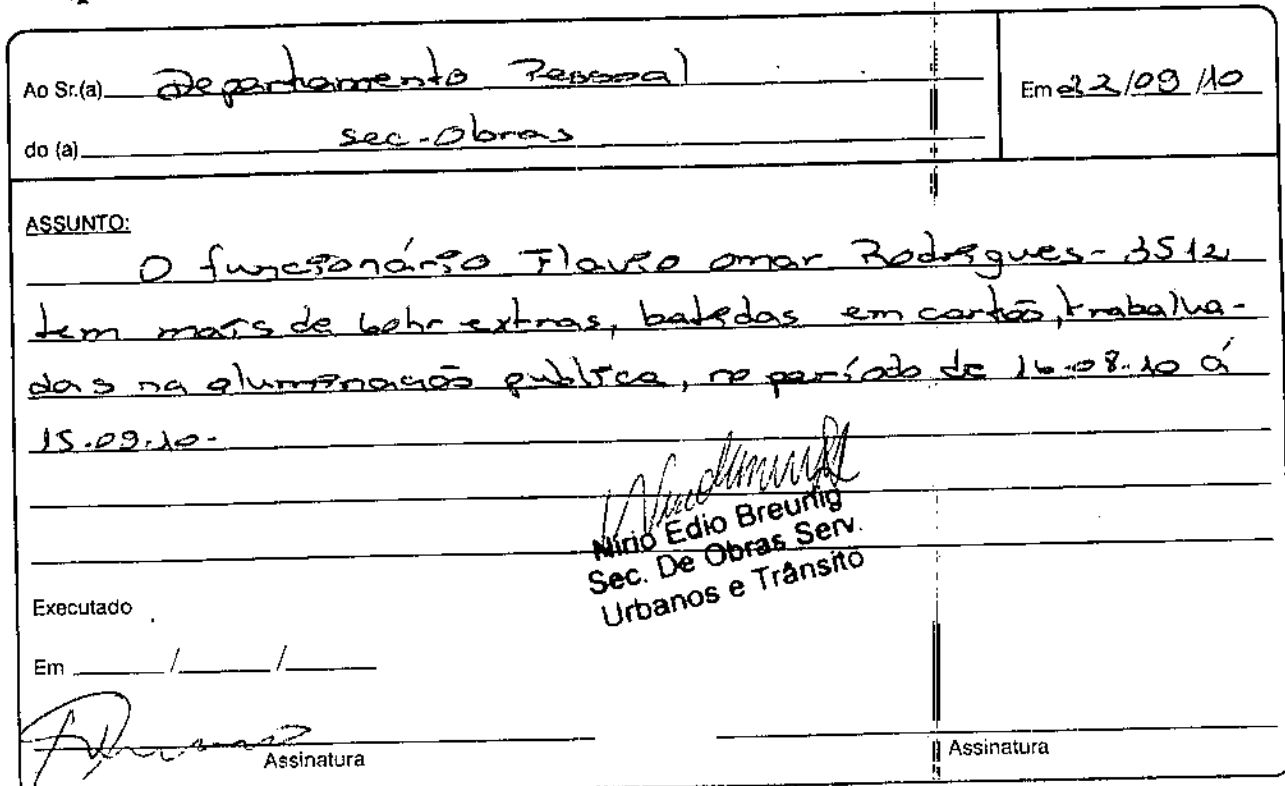 Ao Sr.(a) Departamento Pessoal
Em 22/09/10
do (a) sec. Obras
ASSUNTO:
O funcionário Flavio omar Rodrigues - 3512
tem mais de 60hr extras, batidas em cartão, trabalha-
das na iluminação publica, no período de 16.08.10 á
15.09.10.
Nirio Edio Breunig
Sec. De Obras Serv.
Urbanos e Trânsito
Executado
Em ____/____/____
Assinatura
Assinatura